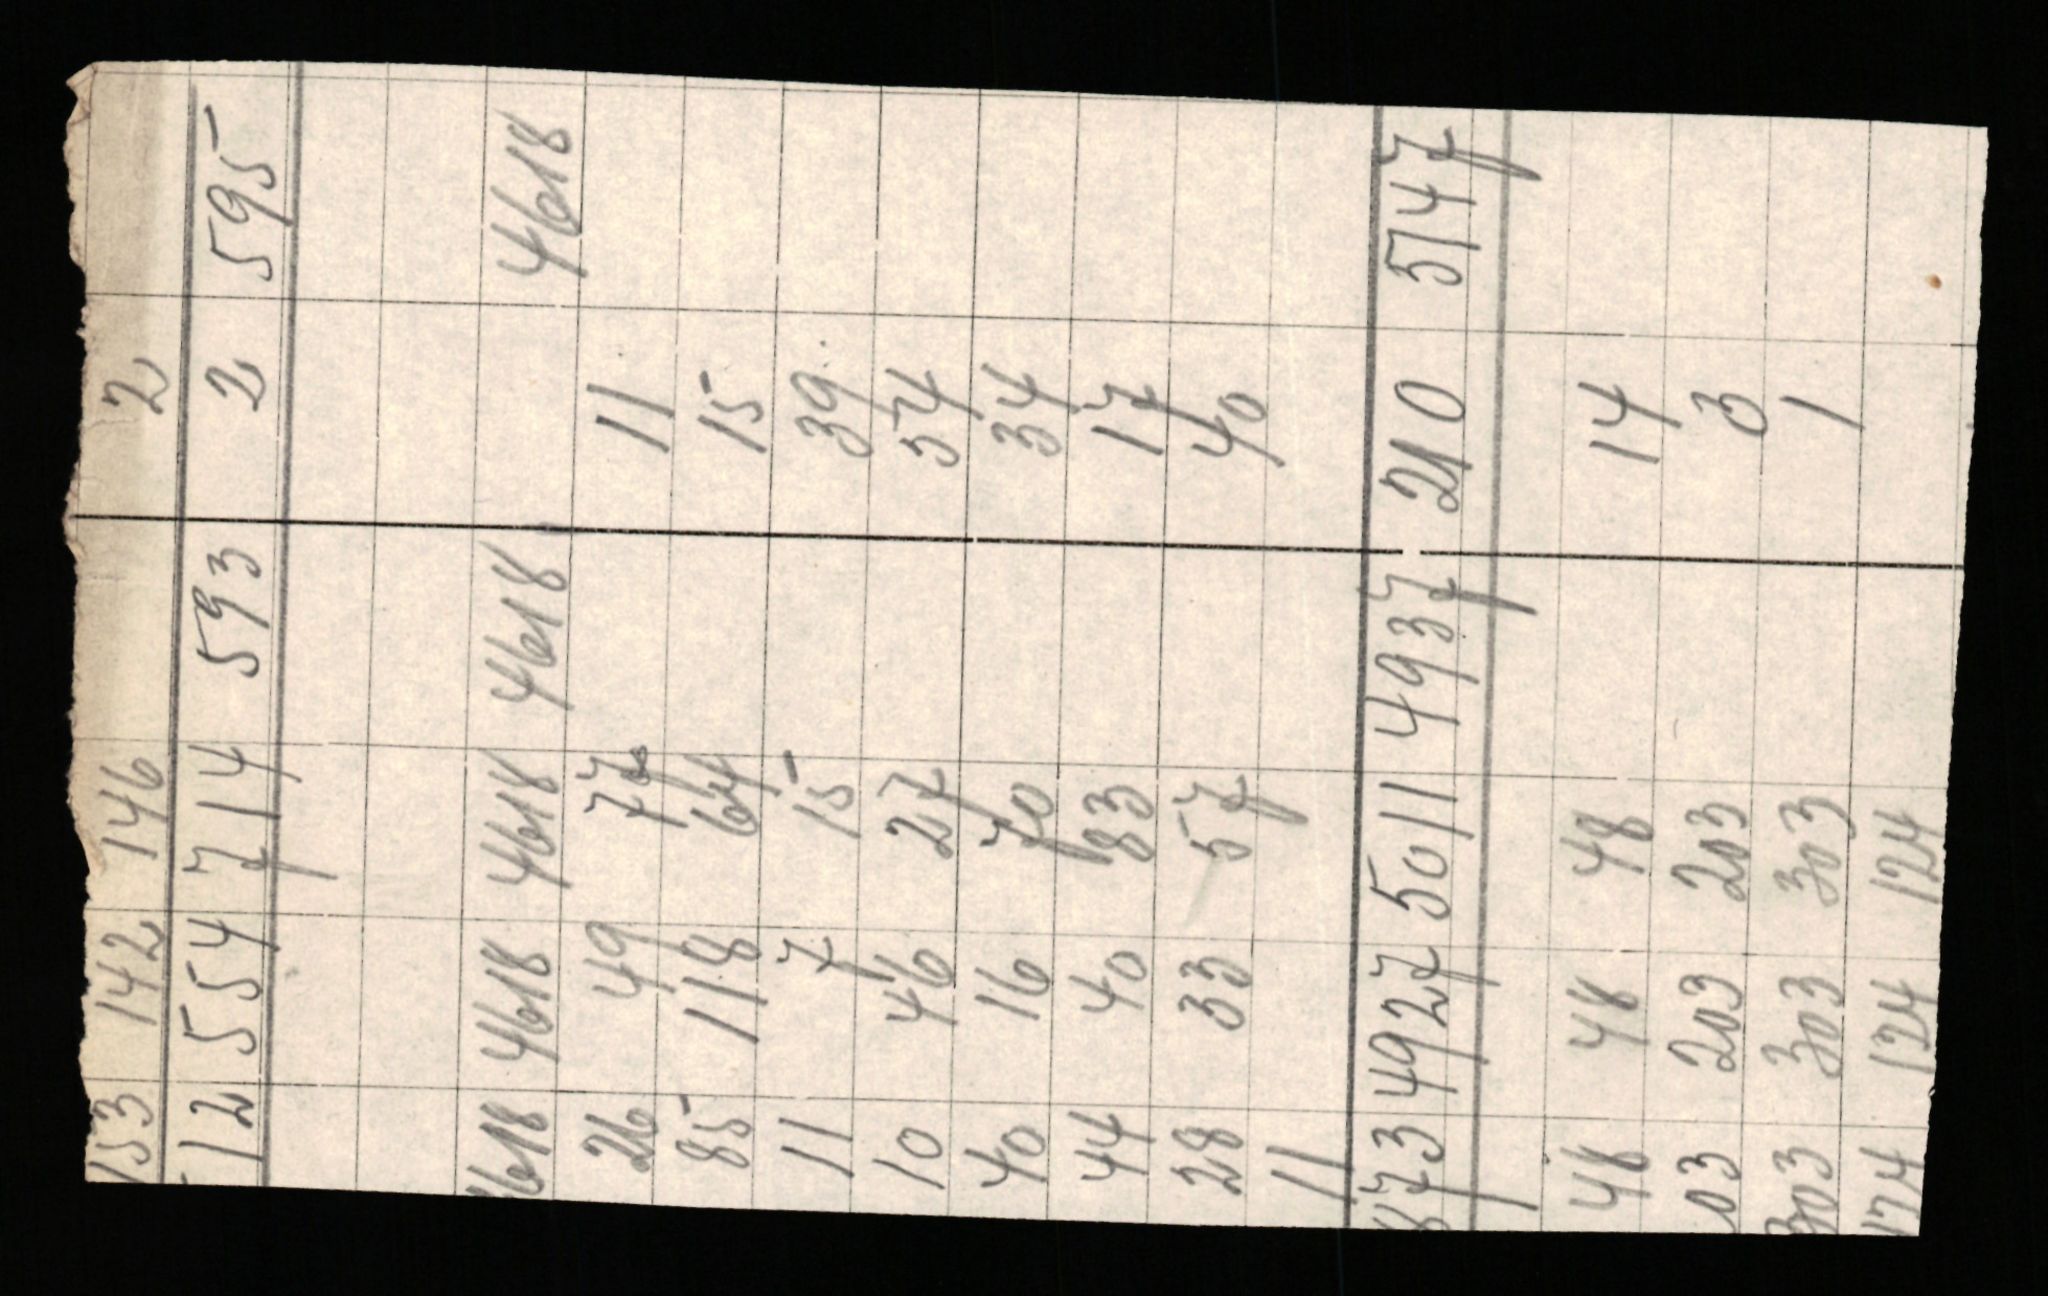 153 142 146 2
12 554 714 593 2 595
4618 4618 4618 4618 4618
26 49 77 11
85 118 64 15
11 7 15 39
10 46 27 54
40 16 70 34
44 40 83 17
28 33 57 40
11
873 4927 5011 4937 210 5147
48 48 48 14
03 203 203 3
303 303 303 1
124 124 124